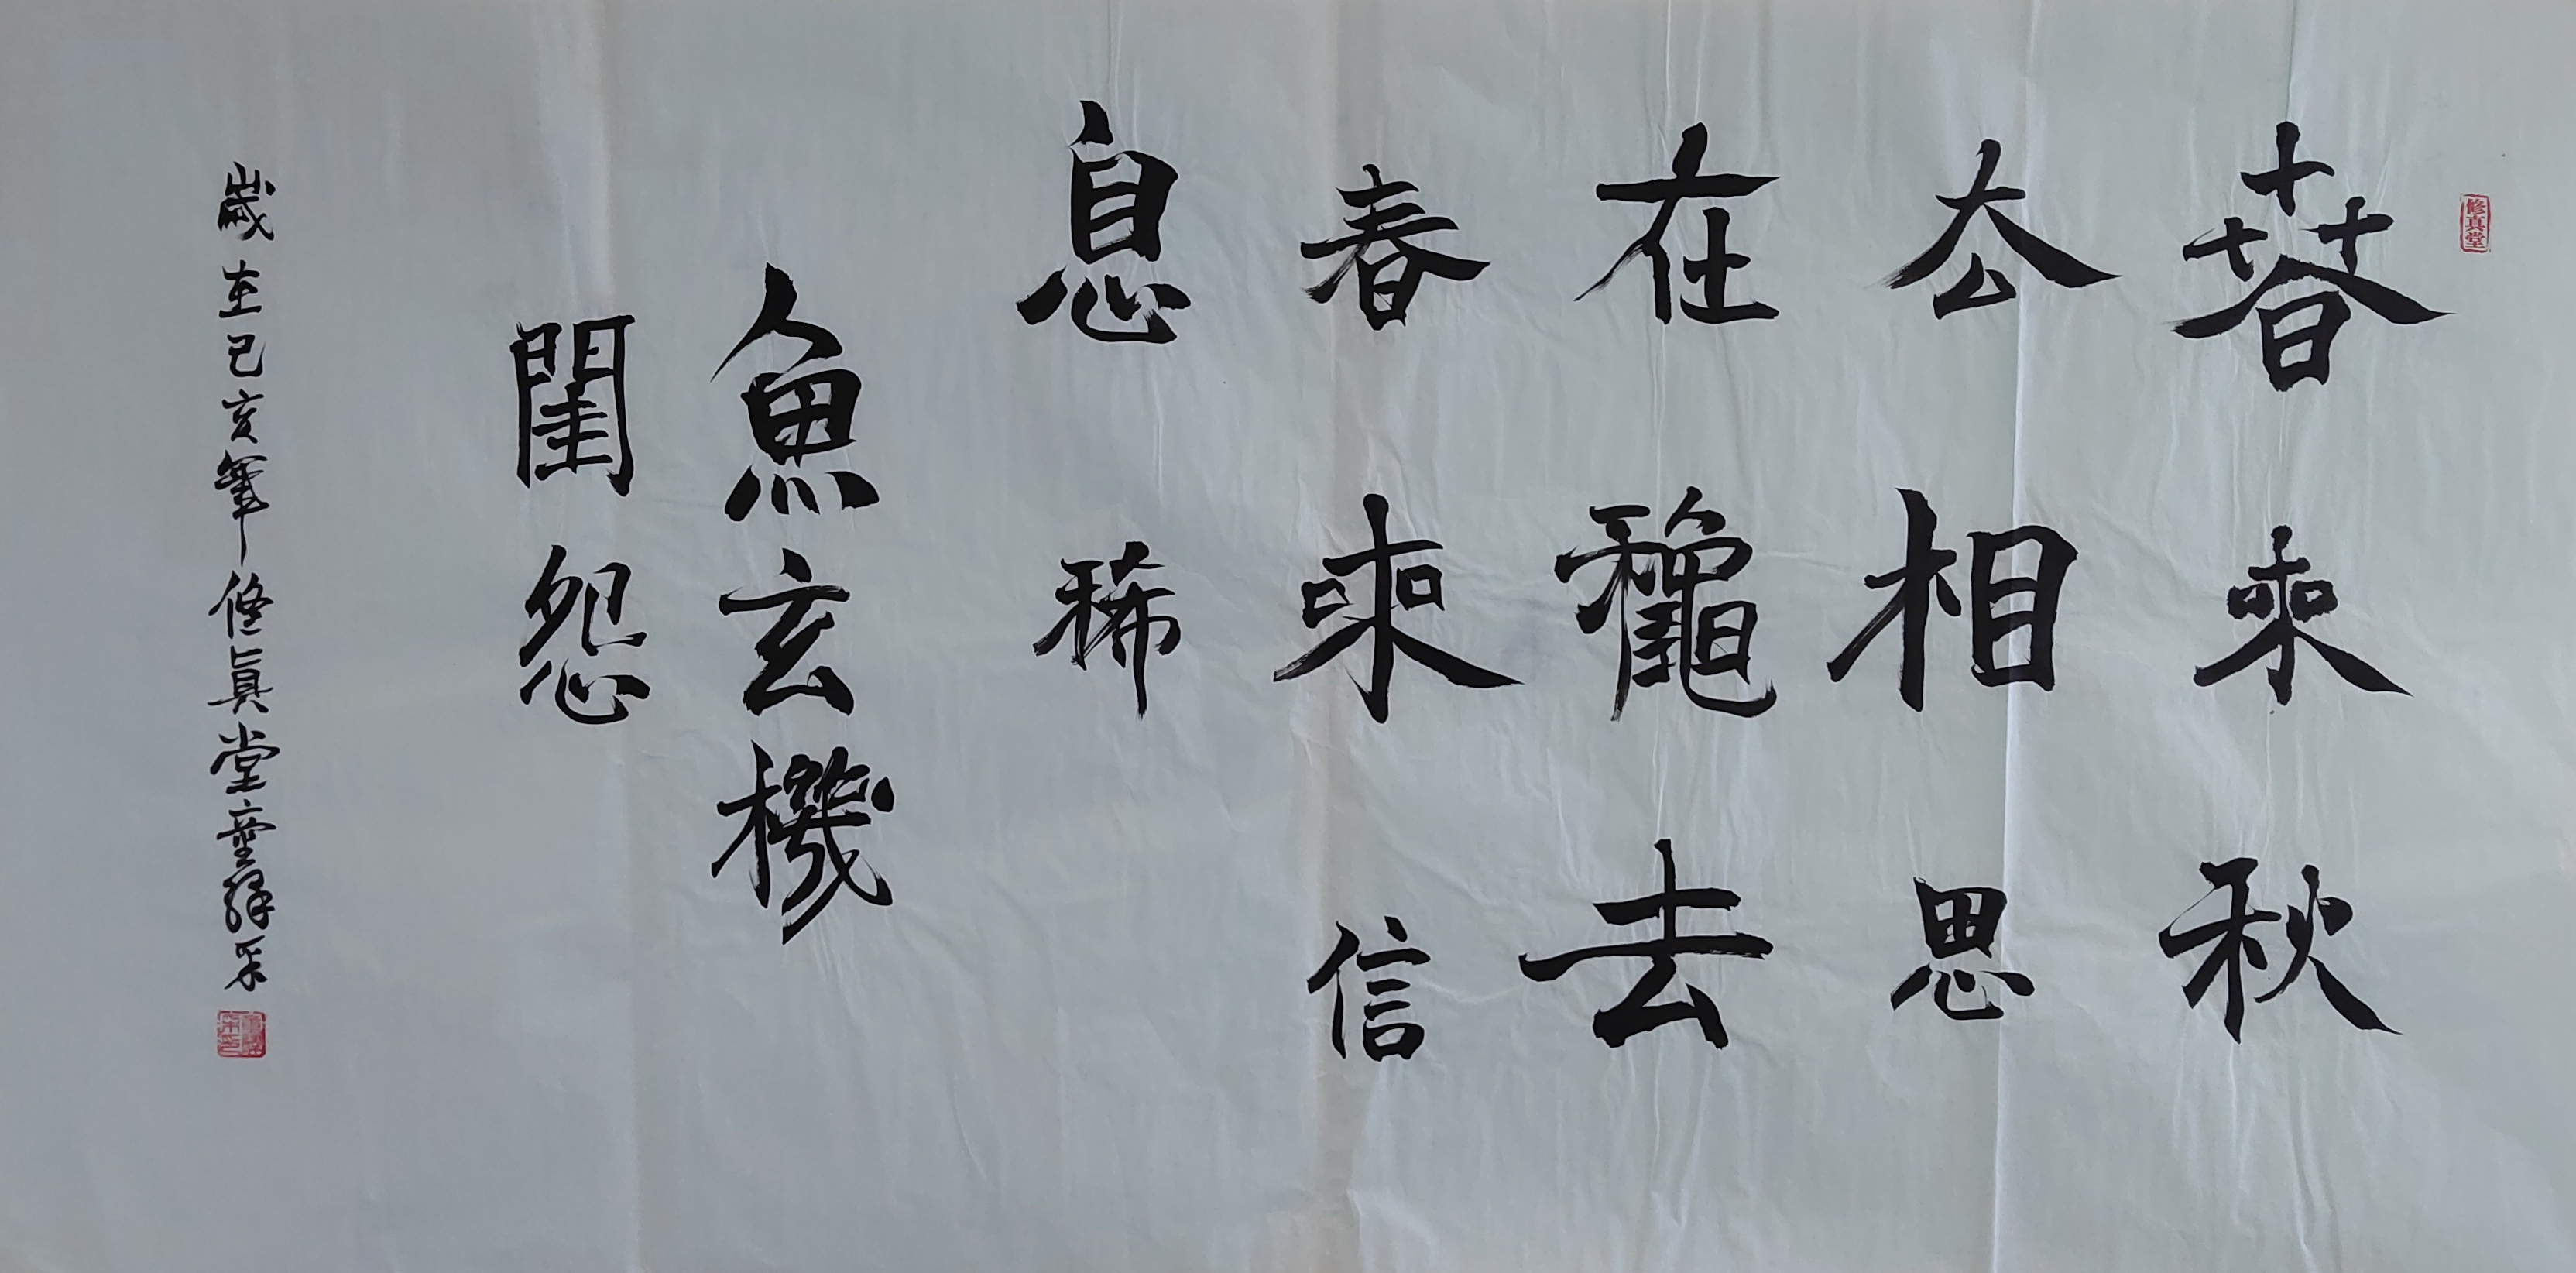 修真堂
萅來秋
厺相思
在龝去
春來信
息稀
魚玄機
閨怨
歲在己亥筆修真堂童釋采